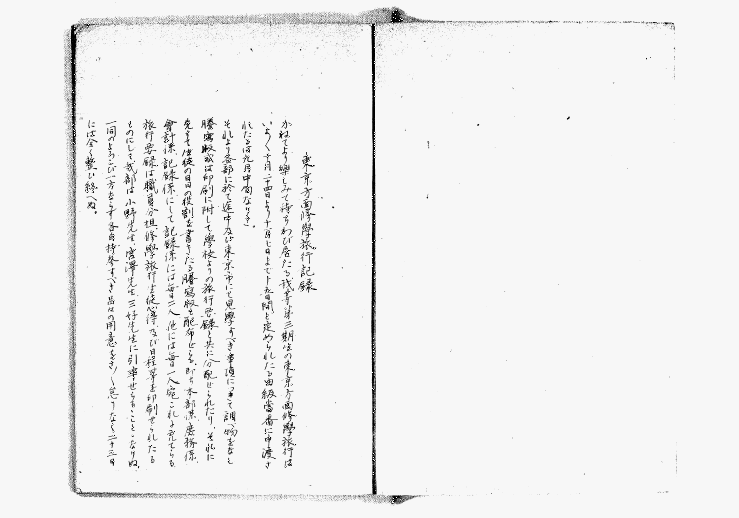 東京方面修學旅行記録
かねてより樂しみて待ちわび居たる我等第三期生の東京方面修學旅行は
いよく十月二十四日より十一月七日まで十五日間と定められたる由級當番に申渡さ
れたるは九月中旬なりき。
それより各部に於て途中及び東京市にて見學すべき事項につきて調べ物をなし
謄寫版或は印刷に附して學校よりの旅行要録と共に分配せられたり、それに
先きて生徒の日日の役割を書きたる謄寫版を配布せらる、即ち本部係 庶務係
會計係 記録係にして記録係には毎日二人 他には毎日一人宛これに充てらる
旅行要録は職員分担、修學旅行生徒心得及び日程等を印刷せられたる
ものにして我部は小野先生、宮澤先生、三好先生に引率せらるることとなりぬ、
一同のよろこび一方ならず各自持參すべき品々の用意をさく怠りなく二十三日
には全く整ひ終へぬ。